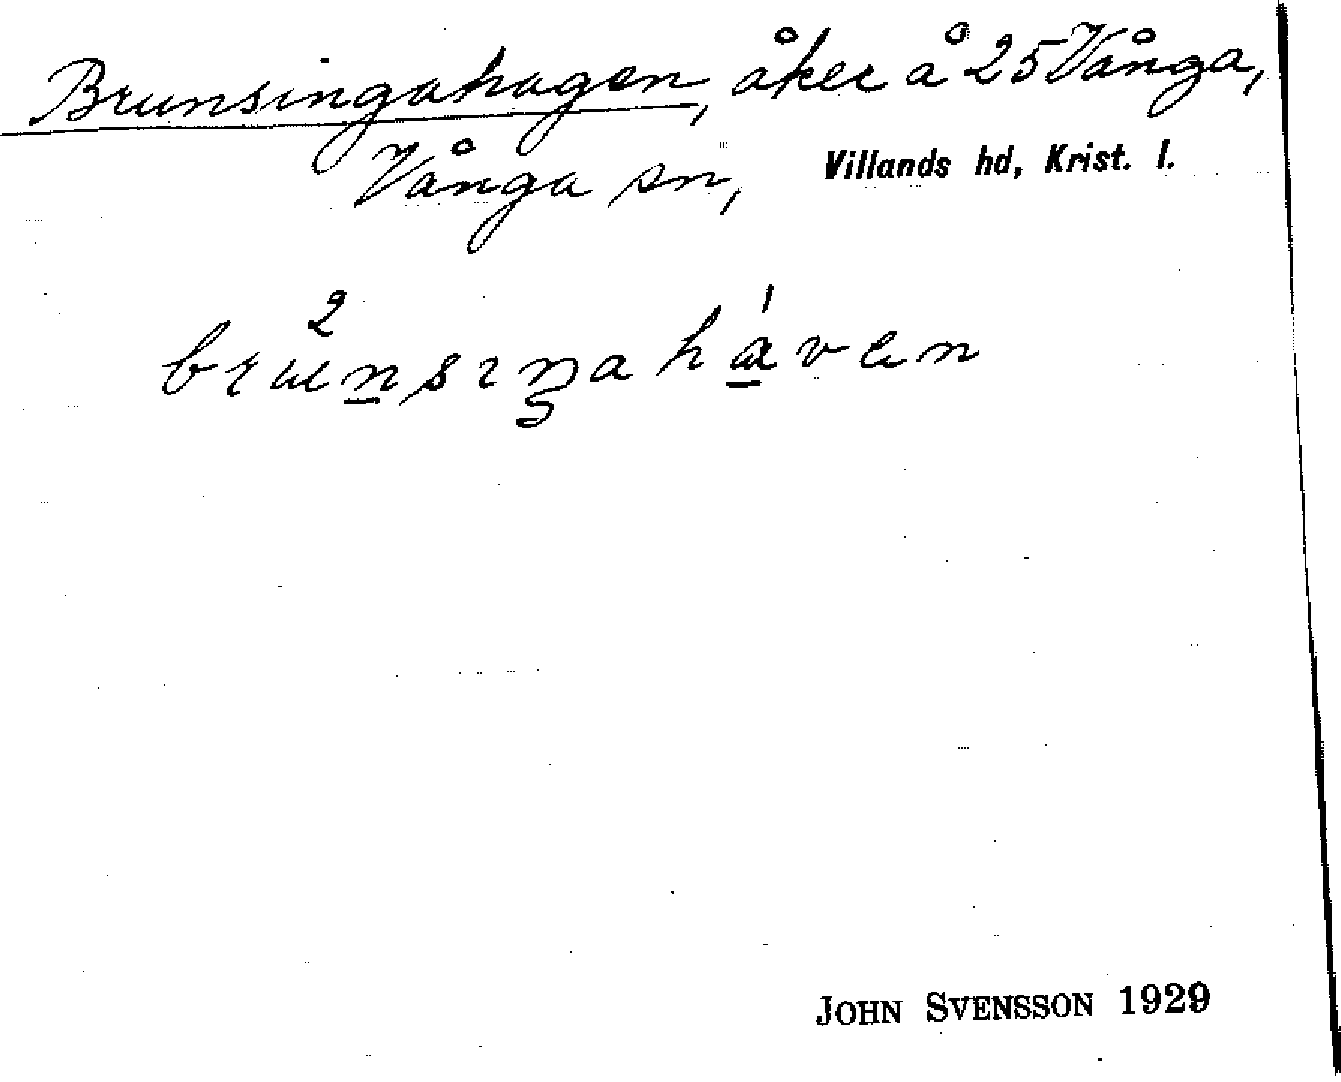 Brunsingahagen, åker å 25 Vånga,
Vånga sn, Villands hd, Krist. l.
JOHN SVENSSON 1929